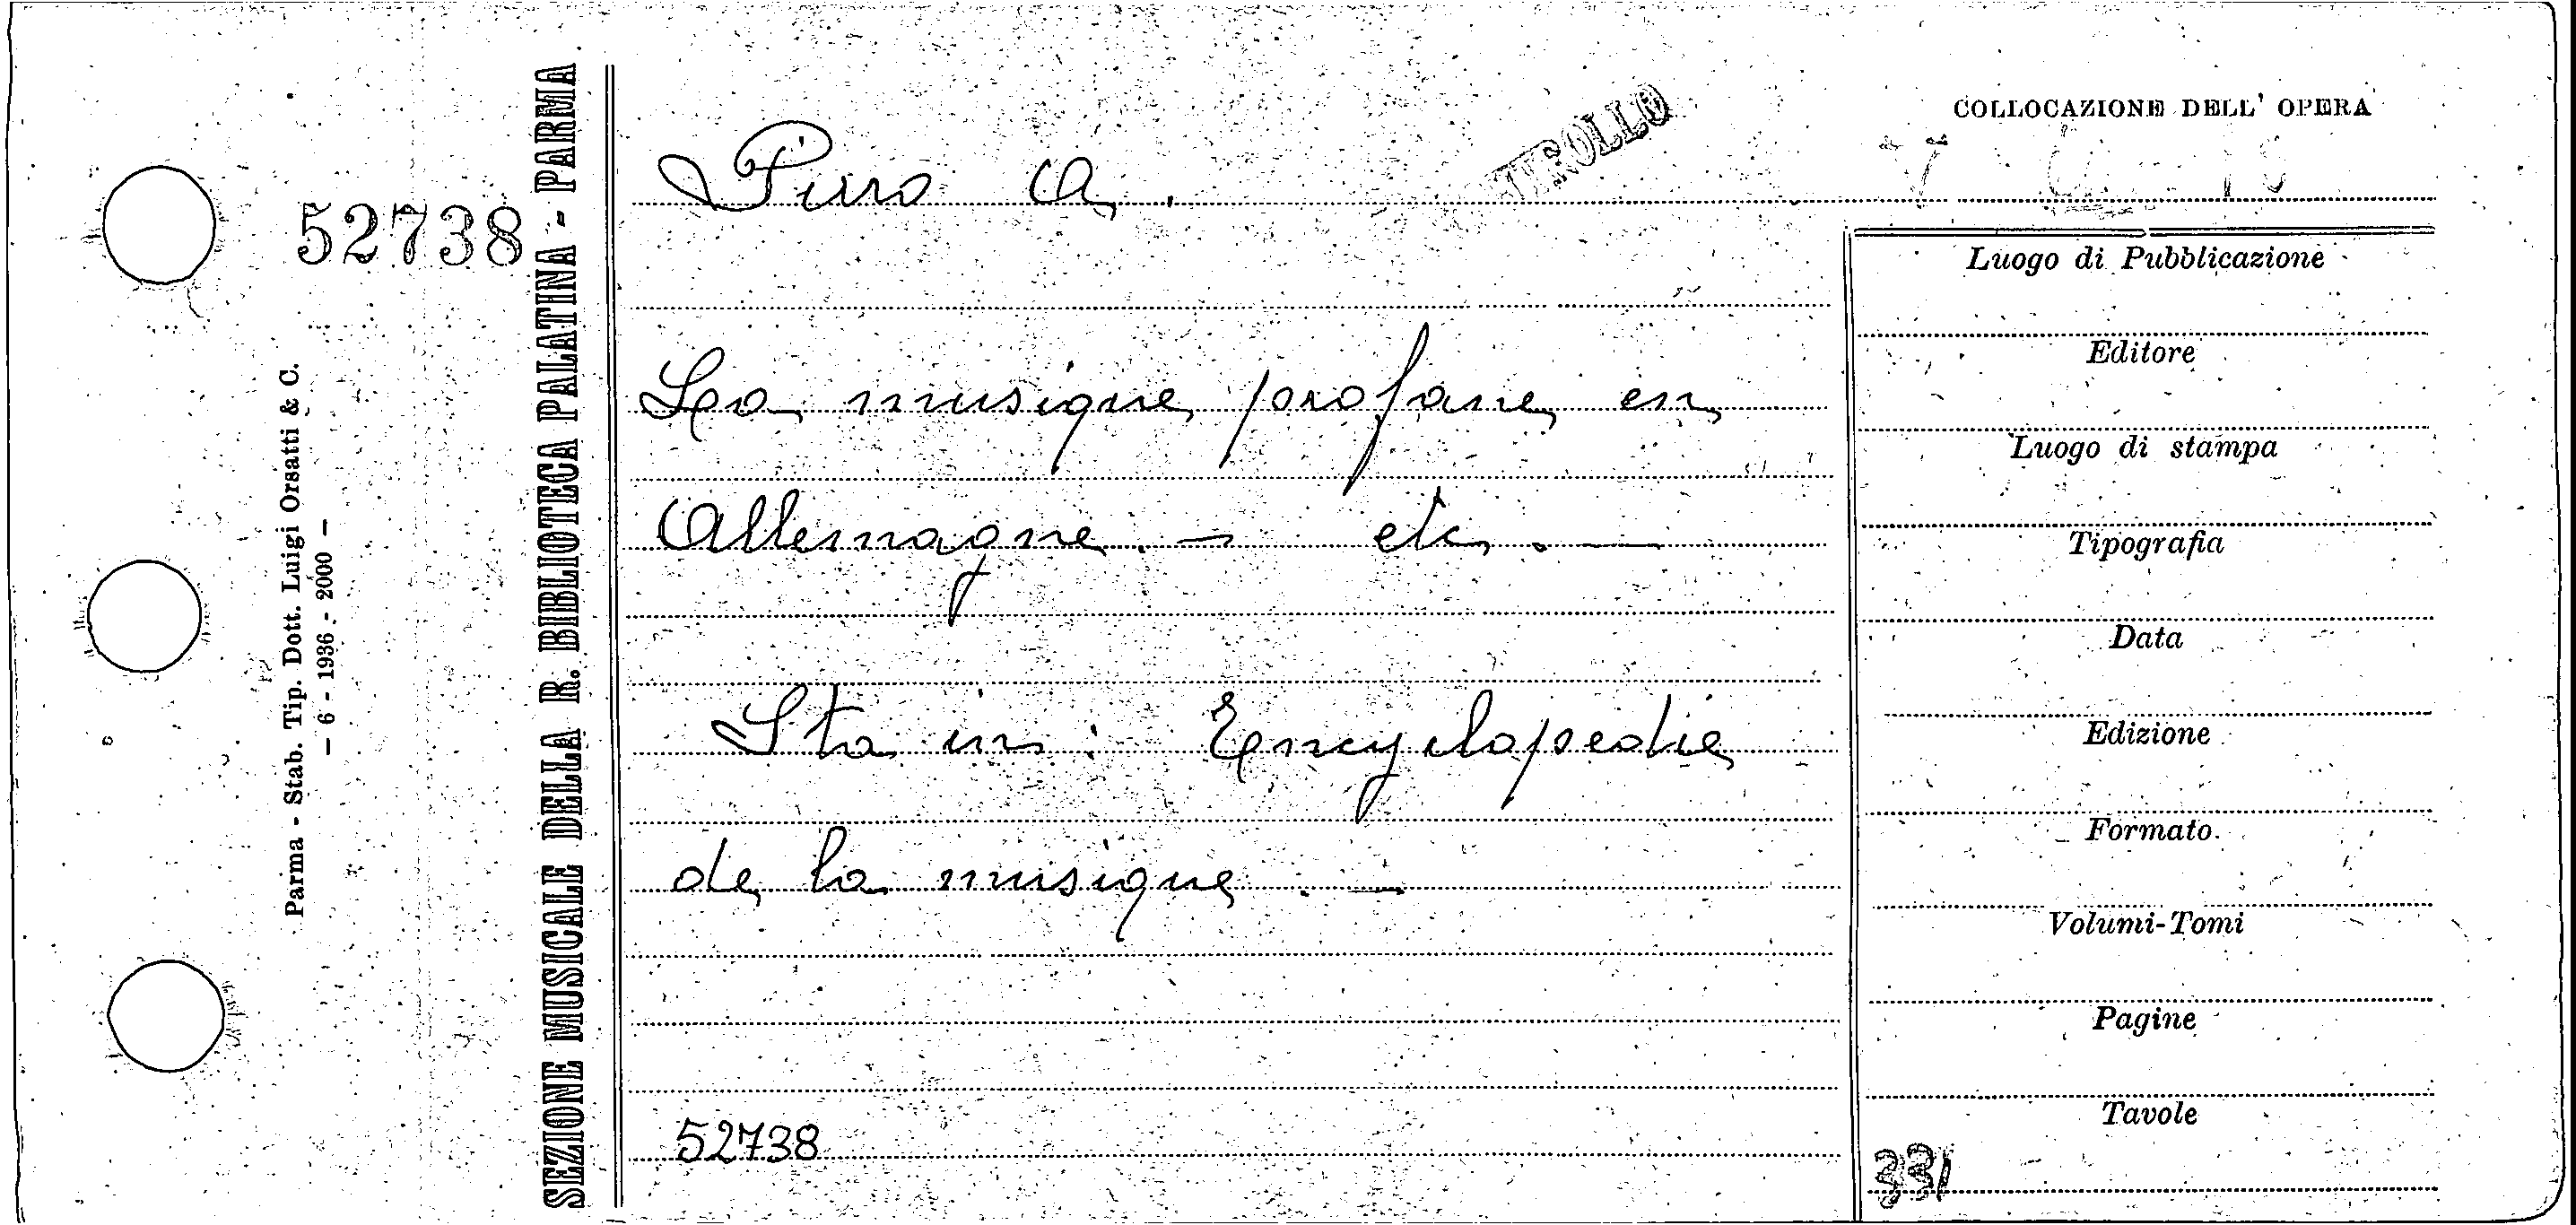 52738
Parma - Stab. Tip. Dott. Luigi Orsatti & C.
— 6 - 1936 - 2000 —
SEZIONE MUSICALE DELLA R. BIBLIOTECA PALATINA - PARMA
Pirro A.
La musique profane en
Allemagne. — etc. —
Sta in: Encyclopedie
de la musique. —
52738
COLLOCAZIONE DELL' OPERA
Luogo di Pubblicazione
Editore
Luogo di stampa
Tipografia
Data
Edizione
Formato
Volumi-Tomi
Pagine
Tavole
331